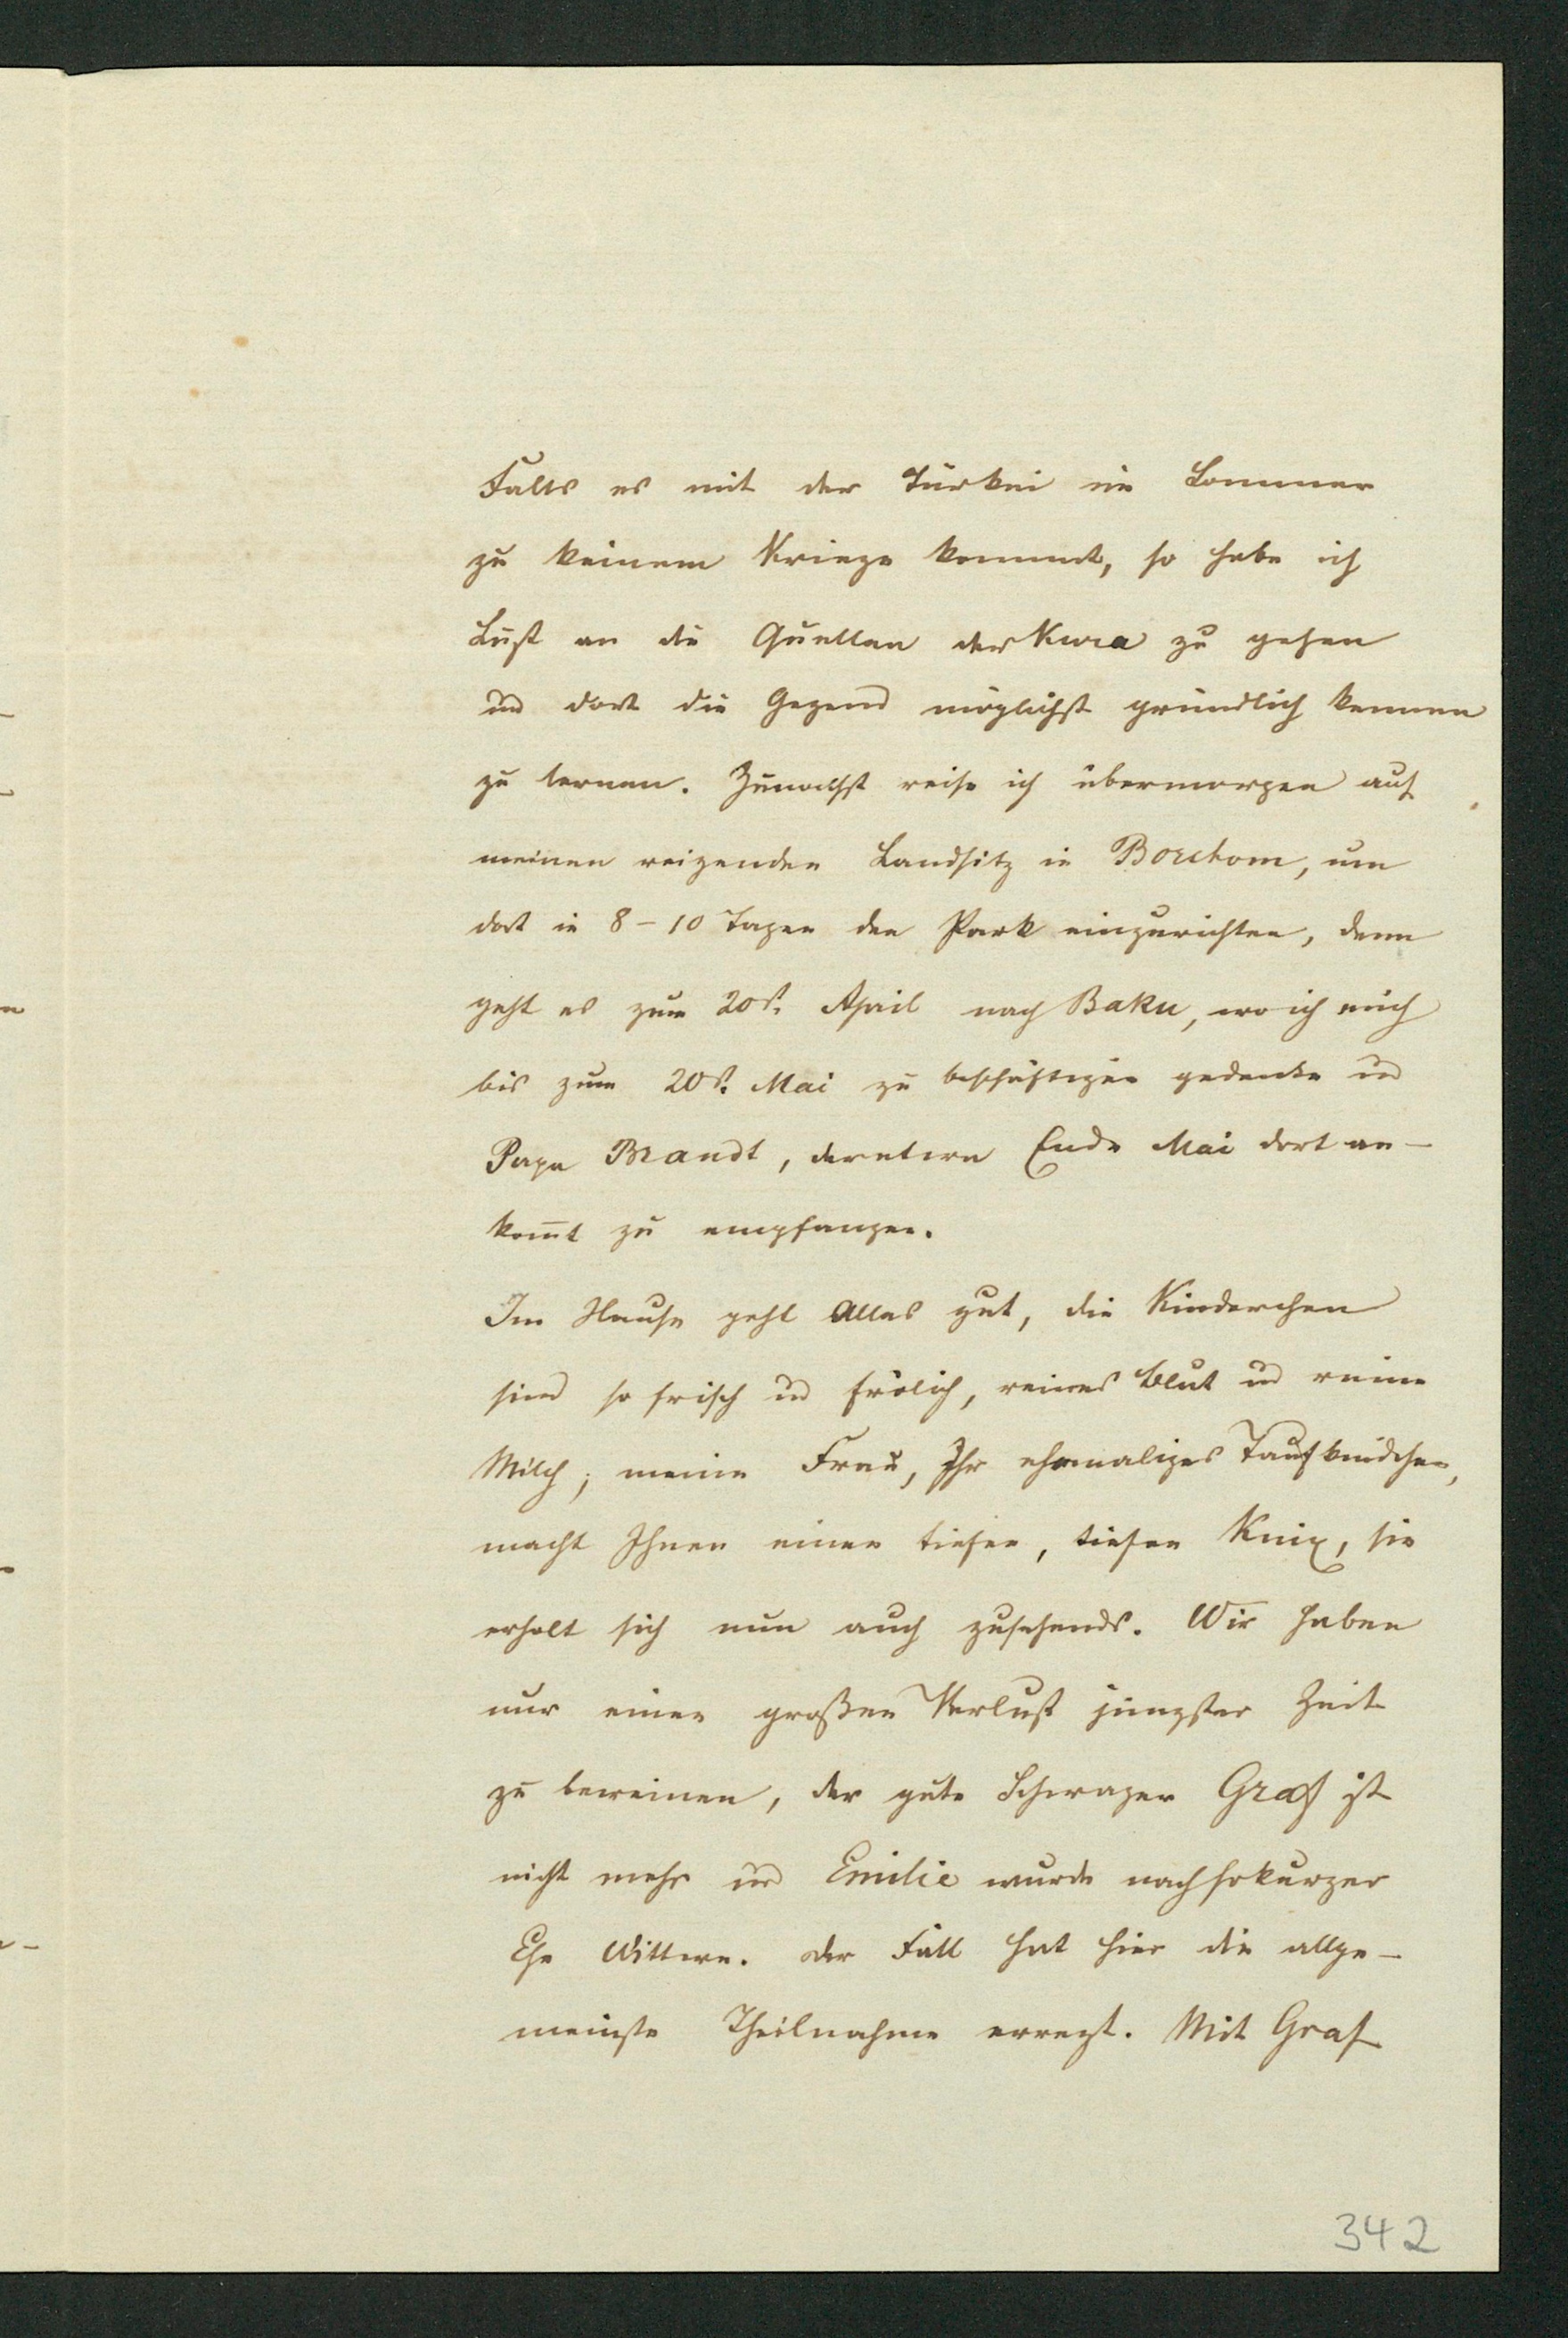 Falls es mit der Türkei im Sommer
zu keinem Kriege kommt, so habe ich
Lust an die Quellen der Kura zu gehen
und dort die Gegend möglichst gründlich kennen
zu lernen. Zunächst reise ich übermorgen auf
meinen reizenden Landsitz in Borshom, um
dort in 8-10 Tagen den Park einzurichten, dann
geht es zum 20st. April nach Baku, wo ich mich
bis zum 20st. Mai zu beschäftigen gedenke und
Papa Brandt, der etwa Ende Mai dort an-
kom̄t zu empfangen.
Im Hause geht Alles gut, die Kinderchen
sind so frisch und frölich, reines Blut und reine
Milch; meine Frau, Ihr ehemaliges Taufkindchen,
macht Ihnen einen tiefen, tiefen Knix, sie
erholt sich nun auch zusehends. Wir haben
nur einen großen Verlust jüngster Zeit
zu beweinen, der gute Schwager Graf ist
nicht mehr und Emilie wurde nach so kurzer
Ehe Wittwe. Der Fall hat hier die allge-
meinste Theilnahme erregt. Mit Graf
342